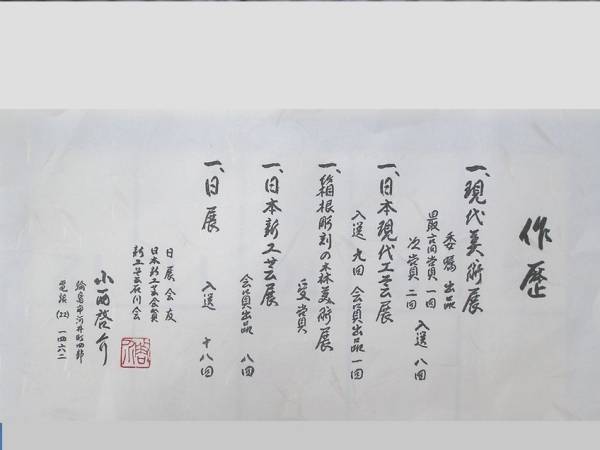 作歴
一、現代美術展
委嘱出品
最高賞一回 入選 八回
次賞二回
一、日本現代工芸展
入選九回 会員出品一回
一、箱根彫刻の森美術展
受賞
一、日本新工芸展
会員出品 八回
一、日展
入選 十八回
日展会友
日本新工芸会員
新工芸石川会
小西啓介
輪島市河井町四部
電話(22)一四六二